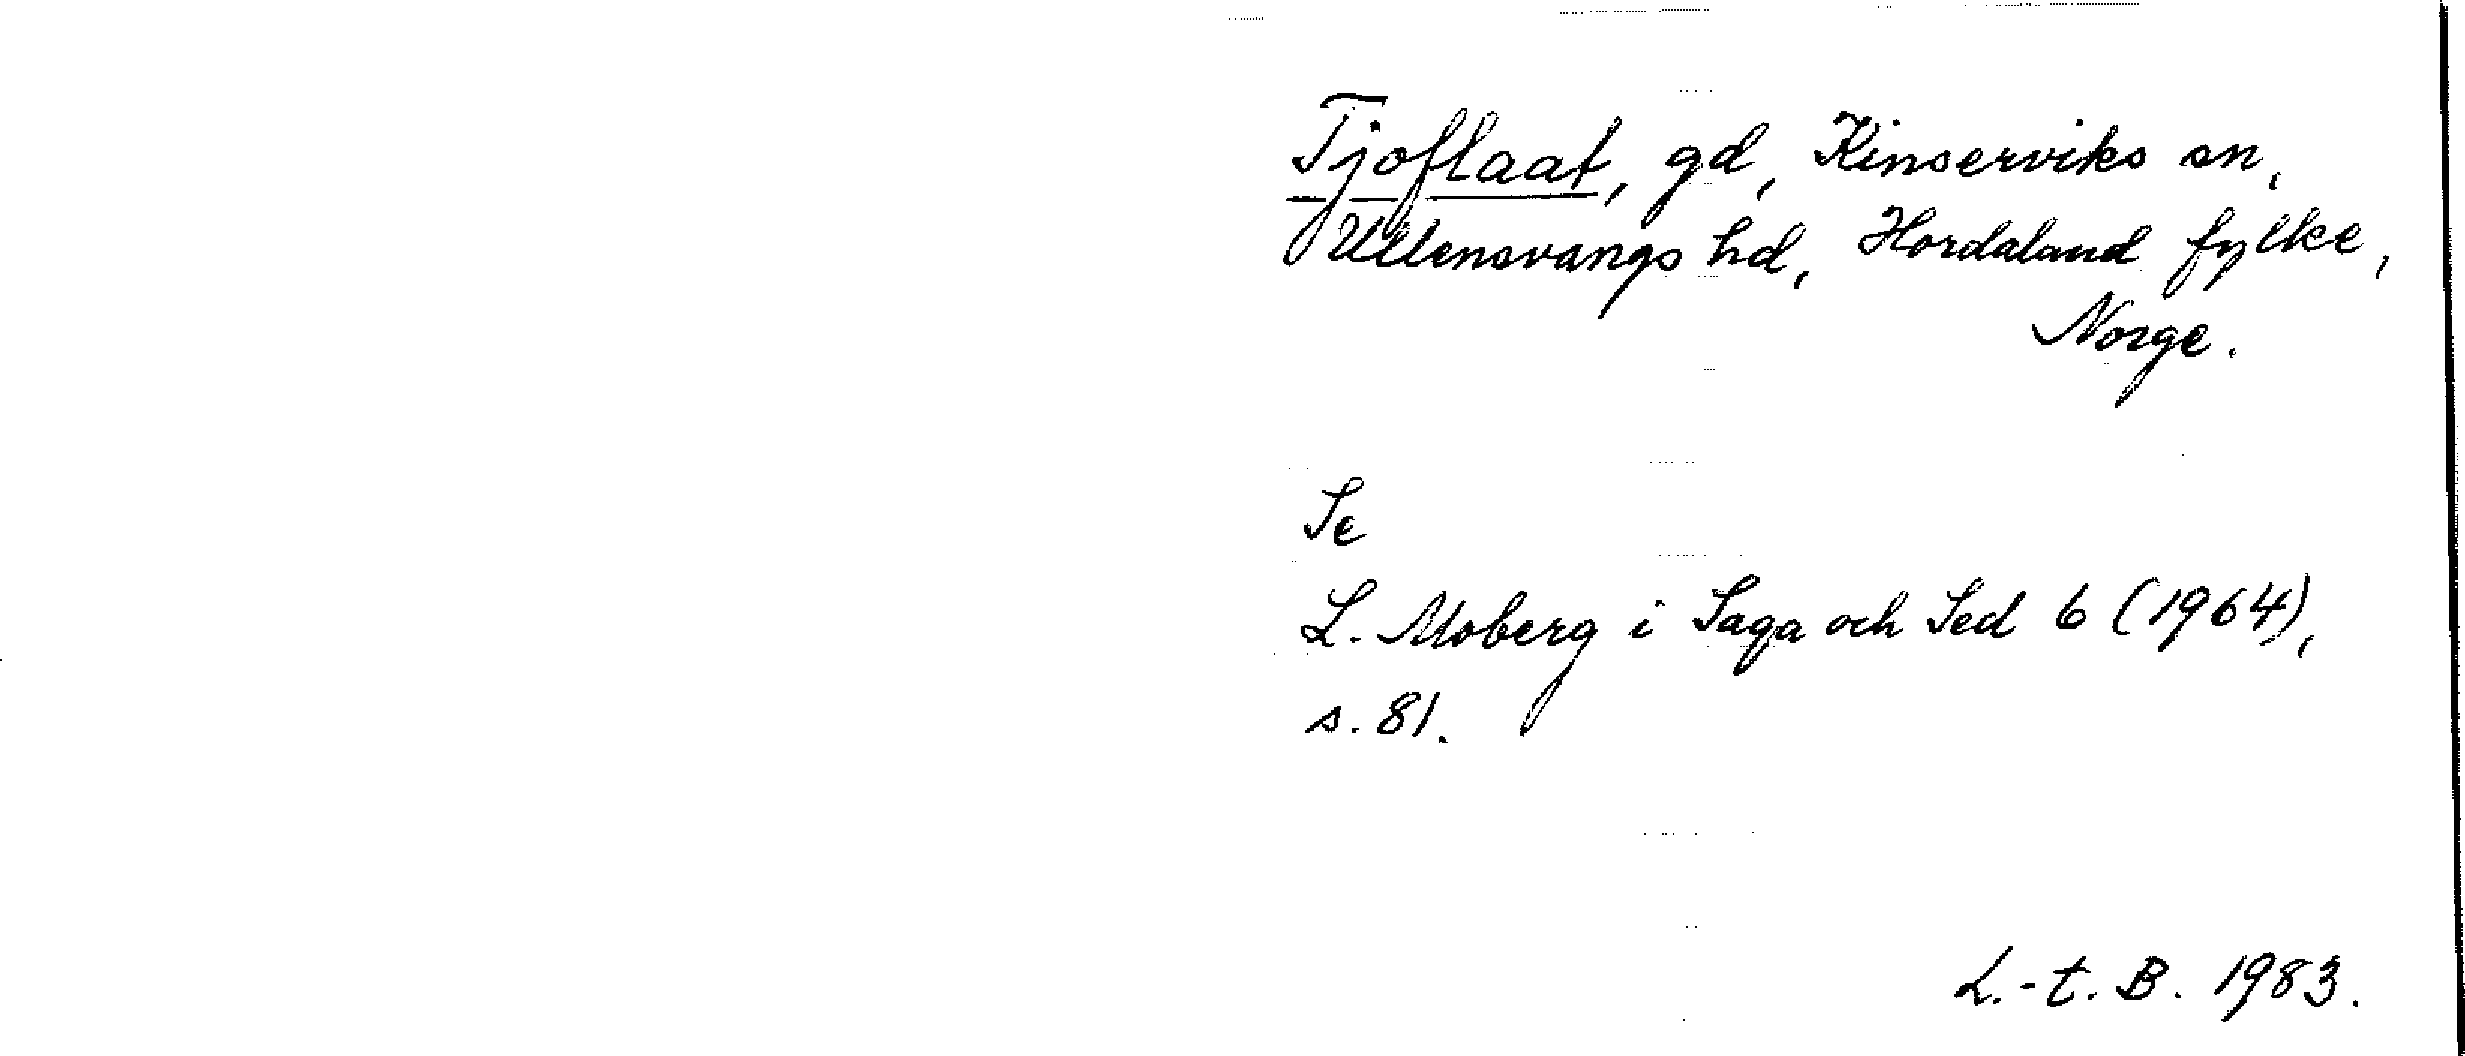 Tjoflaat, gd, Kinserviks sn,
Ullensvangs hd, Hordaland fylke,
Norge.
Se
L. Moberg i Saga och Sed 6 (1964),
s. 81.
L.-t. B. 1983.